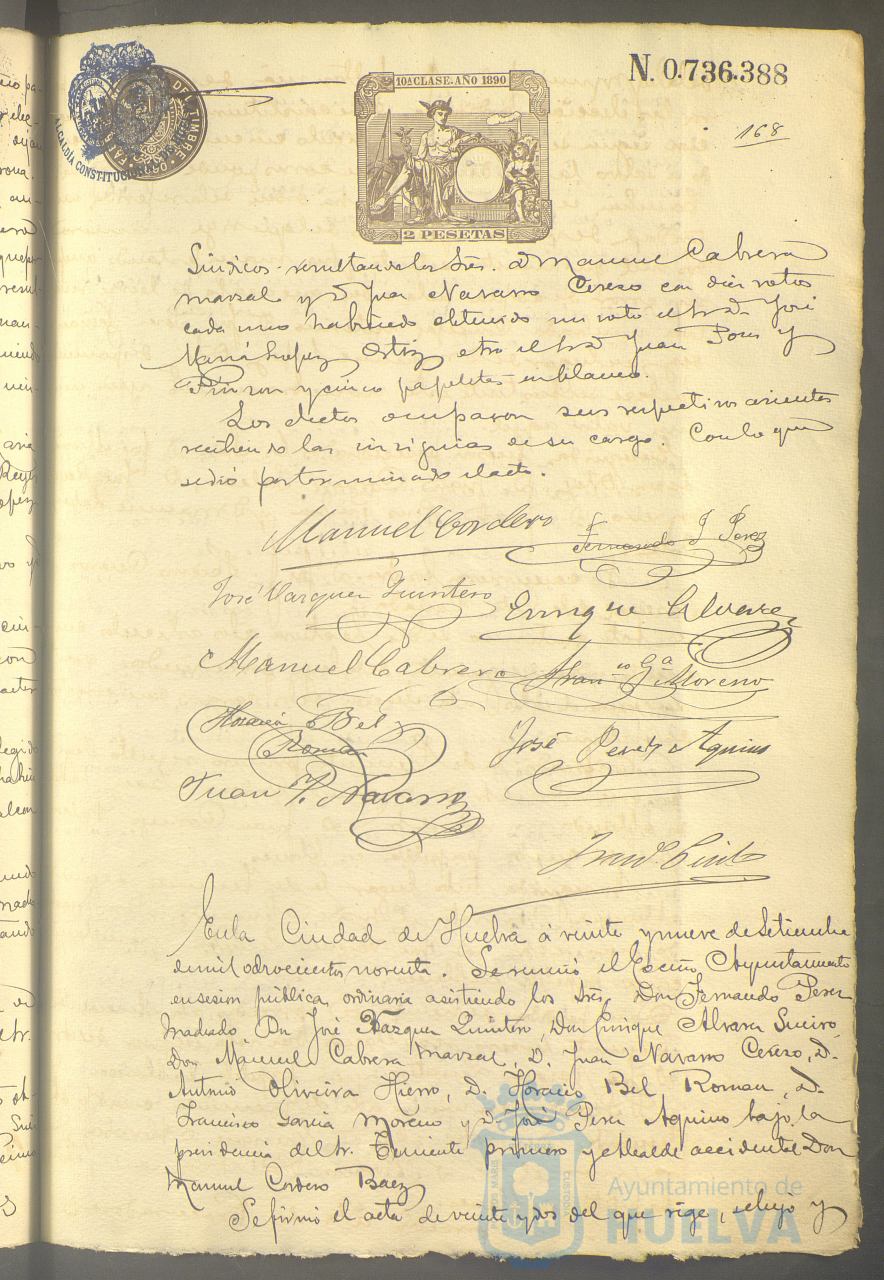 10ª CLASE.-AÑO 1890
N. 0.736.388
168
DEL TIMBRE
ALCALDÍA CONSTITUCIONAL
2 PESETAS
Sindicos resultando los Sres. D Manuel Cabrera
Marzal y D Juan Navarro Cerezo con diez votos
cada uno habiendo obtenido un voto el Sr D José
Maria Lopez Ortiz otro el Sr D Juan Pons y
Pinzon y cinco papeletas en blanco.
Los electos ocuparon sus respectivos asientos
recibiendo las insignias de su cargo. Con lo que
se dió por terminado el acto.
Manuel Cordero
Fernando J Perez
José Vazquez Quintero
Enrique Alvarez
Manuel Cabrera
Franco Ga Moreno
Horacio Bel
Roman
José Perez Aquino
Juan P. Navarro
En la Ciudad de Huelva á veinte y nueve de Setiembre
de mil ochocientos noventa. Se reunió el Excmo Ayuntamiento
en sesion pública ordinaria asistiendo los Sres Don Fernando Perez
Machado Dn José Vazquez Quintero, Don Enrique Alvarez Sueiro,
Don Manuel Cabrera Marzal, D. Juan Navarro Cerezo, D.
Antonio Oliveira Hierro, D. Horacio Bel Roman, D.
Francisco Garcia Moreno y D José Perez Aquino bajo la
presidencia del Sr. Teniente primero y Alcalde accidental Don
Manuel Cordero Baez
Se firmó el acta de veinte y dos del que rige, se leyó y
Ayuntamiento de
HUELVA